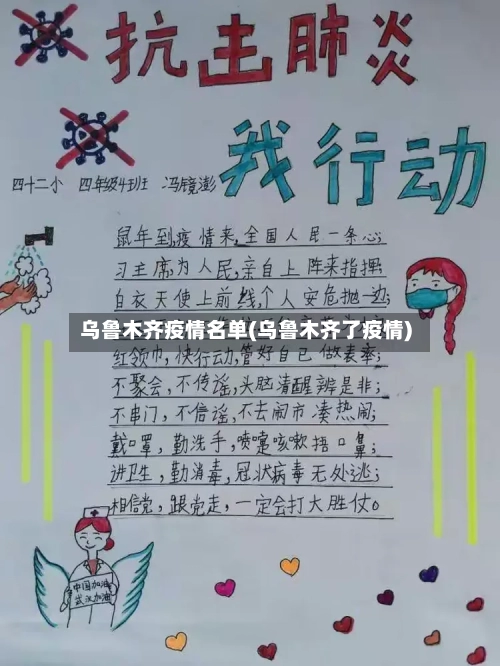 抗击肺炎
我行动
四十二小 四年级4班 冯镜澎
鼠年到,疫情来,全国人民一条心;
习主席,为人民,亲自上阵来指挥;
白衣天使上前线,个人安危抛一边;
乌鲁木齐疫情名单(乌鲁木齐了疫情)
红领巾,快行动,管好自己做表率;
不聚会,不传谣,头脑清醒辨是非;
不串门,不信谣,不去闹市凑热闹;
戴口罩,勤洗手,喷嚏咳嗽捂口鼻;
讲卫生,勤消毒,冠状病毒无处逃;
相信党,跟党走,一定会打大胜仗。
中国加油
武汉加油